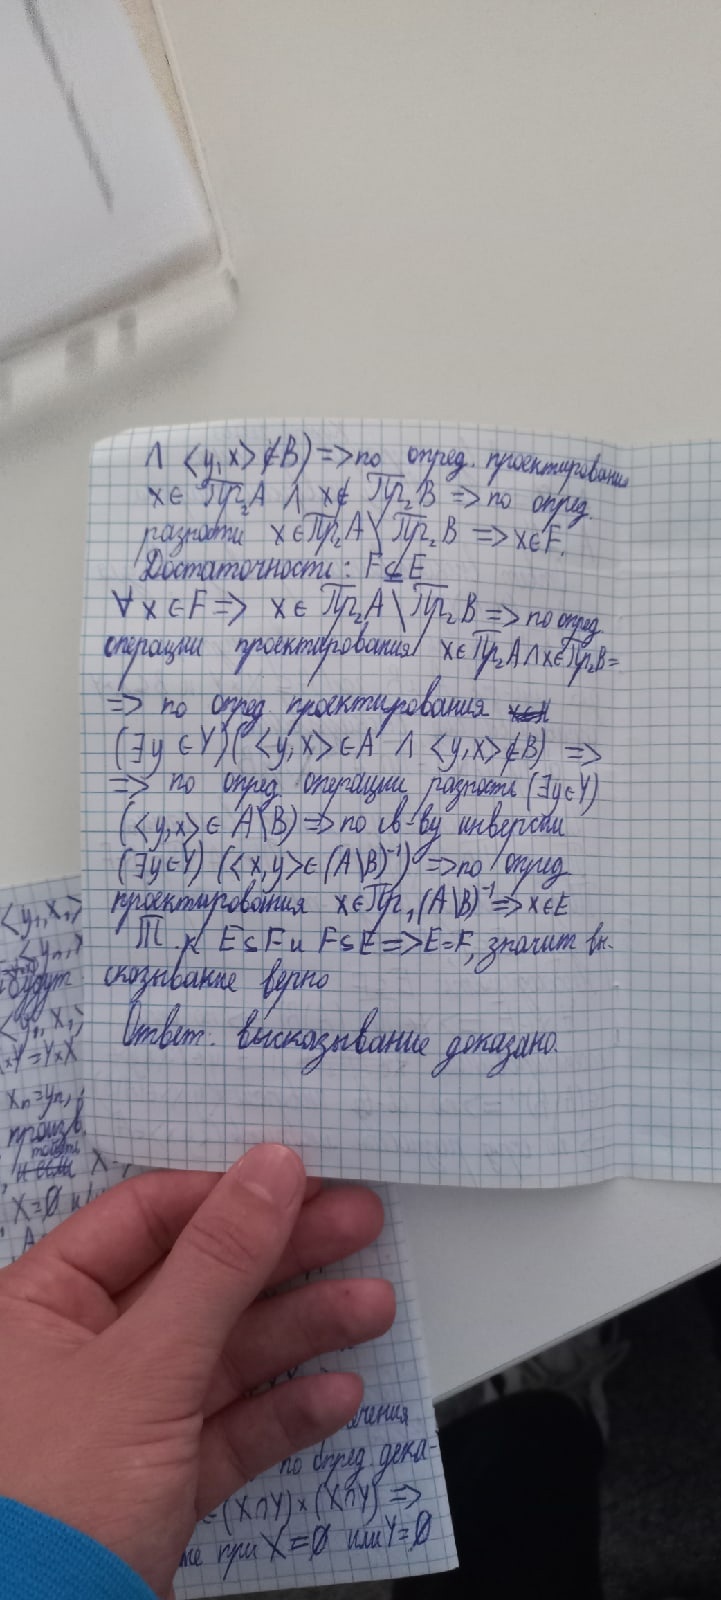 ∧ <y,x> ∉ B) => по опред. проектирования
x ∈ Пр₂A ∧ x ∉ Пр₂B => по опред.
разности x ∈ Пр₂A \ Пр₂B => x ∈ F.
Достаточности: F ⊆ E
∀ x ∈ F => x ∈ Пр₂A \ Пр₂B => по опред.
операции проектирования x ∈ Пр₂A ∧ x ∈ Пр₂B =
=> по опред. проектирования
(∃y ∈ Y) (<y,x> ∈ A ∧ <y,x> ∉ B) =>
=> по опред. операции разность (∃y ∈ Y)
(<y,x> ∈ A\B) => по св-ву инверсии
(∃y ∈ Y) (<x,y> ∈ (A\B)⁻¹) => по опред
проектирования x ∈ Пр₁(A\B)⁻¹ => x ∈ E
Т. к E ⊆ F и F ⊆ E => E = F, значит вы-
сказывание верно
Ответ: высказывание доказано.
<y₁, x₁>
<yₙ,
будут
<y₁, x₁>
xY = YxX
xₙ = yₙ,
произв.
и если X
X = ∅ и
чения
по опред. дека-
∈ (X∩Y) × (X∩Y) =>
же при X = ∅ или Y = ∅